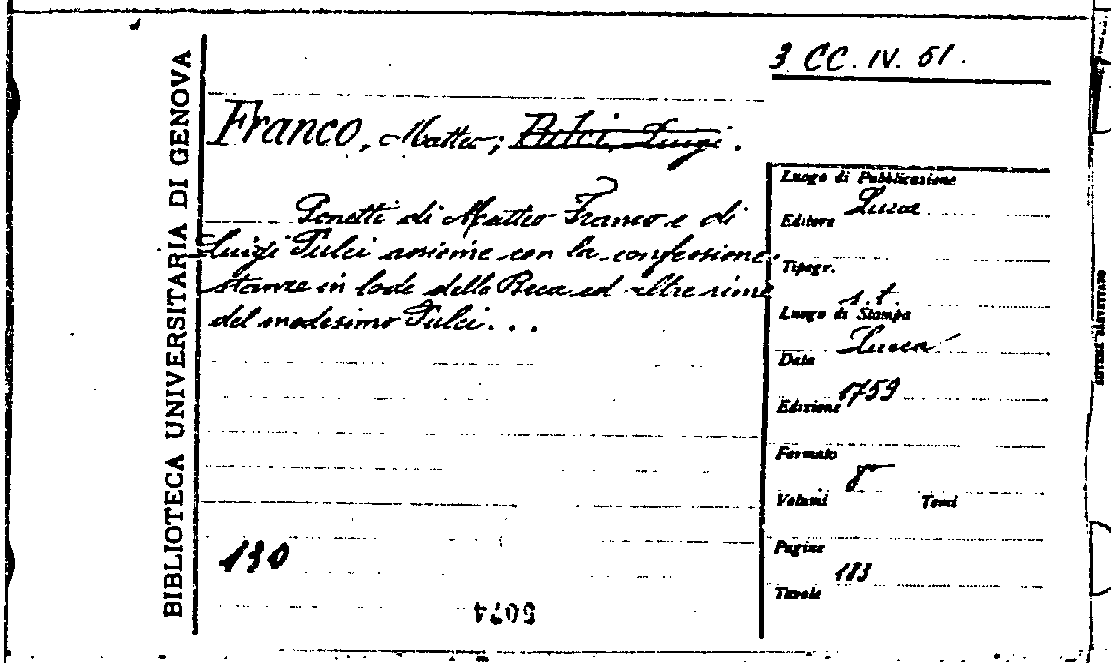 3 CC. IV. 61.
BIBLIOTECA UNIVERSITARIA DI GENOVA
Franco, Matteo; Pulci, Luigi.
Sonetti di Matteo Franco e di
Luigi Pulci assieme con la confessione:
stanze in lode della Beca ed altre rime
del medesimo Pulci...
Luogo di Pubblicazione
Lucca
Editore
Tipogr.
s. t.
Luogo di Stampa
Lucca
Data
1759
Edizione
Formato
8°
Volumi Tomi
Pagine
183
Tavole
130
5074